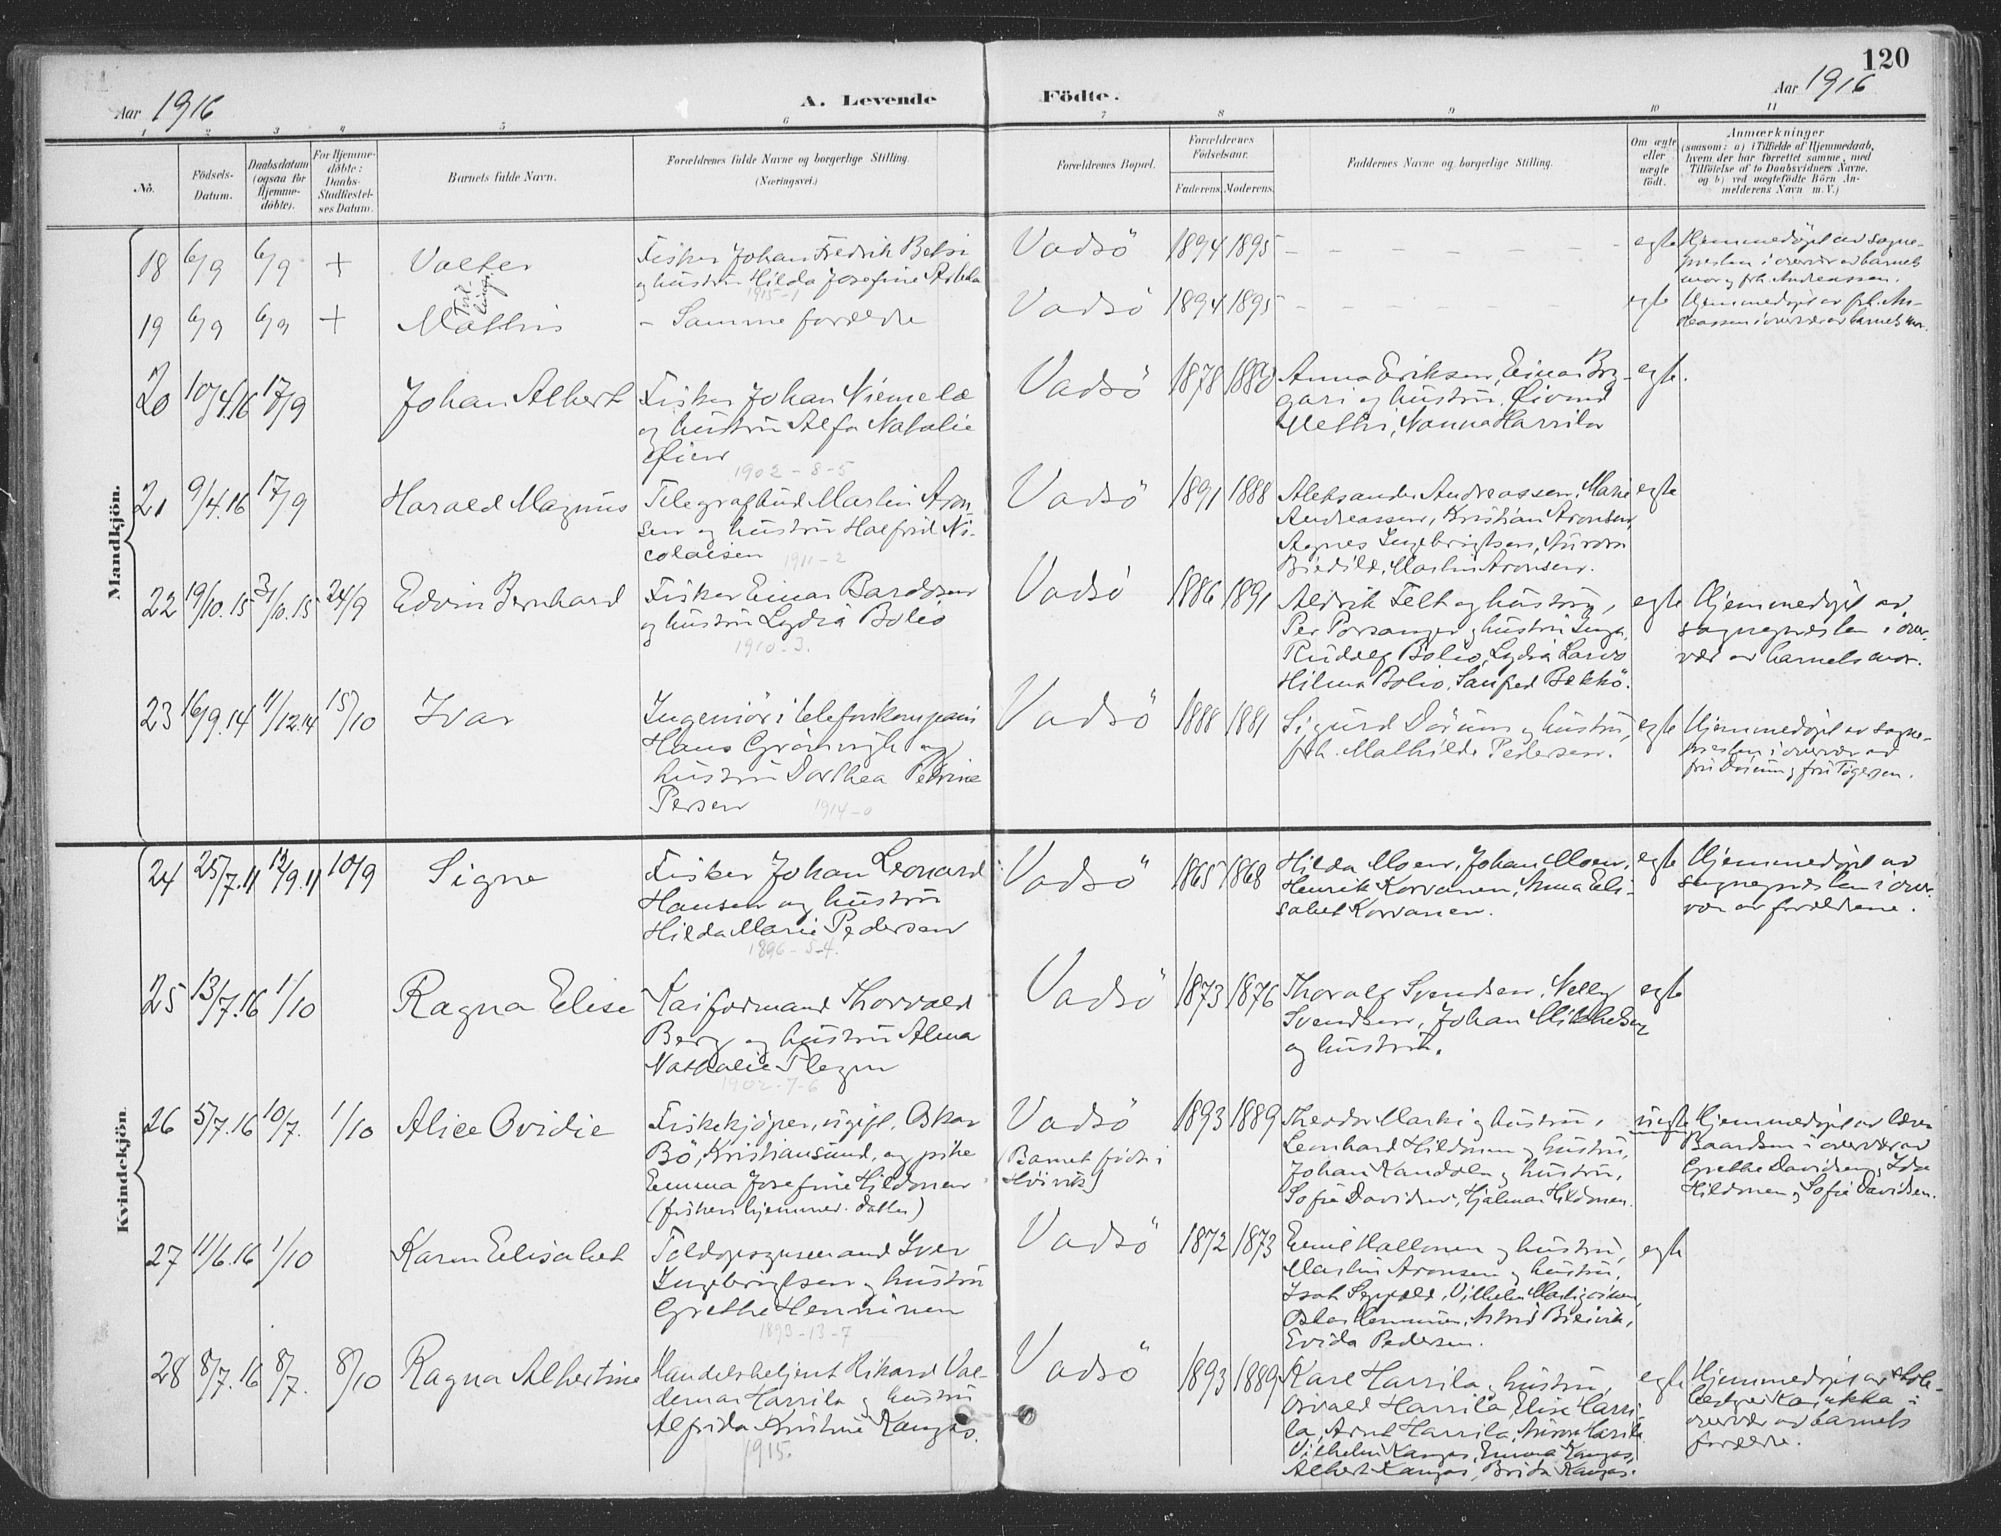 120
Aar 1916
A. Levende
Födte.
Aar 1916
1 2 3 4 5 6 7 8 9 10 11
No.
Födsels-
Datum.
Daabsdatum
(ogsaa for
Hjemme-
döbte).
For Hjemme-
döbte:
Daabs-
Stadfæstel-
ses Datum.
Barnets fulde Navn.
Forældrenes fulde Navne og borgerlige Stilling.
(Næringsvei.)
Forældrenes Bopæl.
Forældrenes
Födselsaar.
Faderens. Moderens.
Faddernes Navne og borgerlige Stilling.
Om ægte
eller
uægte
födt.
Anmærkninger
(saasom: a) i Tilfælde af Hjemmedaab,
hvem der har forrettet samme, med
Tilföielse af to Daabsvidners Navne,
og b) ved uægtefödte Börn An-
melderens Navn m. V.)
Mandkjön.
18 6/9 6/9 + Valter
Fisker Johan Fredrik Betsi
og hustru Hilda Josefine
1915-1
Vadsö 1894 1895 - - - - - - egte
Hjemmedöpt av sogne-
presten i overvær av barnets
mor og frk. Andreassen.
19 6/9 6/9 + Mathis
Tvil-
linger
- Samme forældre
Vadsö 1894 1895 - - - - - - egte
Hjemmedöpt av frk. An-
dreassen i overvær av barnets mor.
20 10/4.16 17/9 Johan Albert
Fisker Johan Niemelæ
og hustru Alfa Natalie
Öien
1902-8-5
Vadsö 1878 1880
Anna Eriksen, Einar Bry-
gari og hustru, Öivind
Methi, Nanna Harrila
egte.
21 9/4.16 17/9 Harald Magnus
Telegrafbud Martin Aron-
sen og hustru Halfrid Ni-
colaisen
1911-2
Vadsö 1891 1888
Aleksander Andreassen, Marie
Andreassen, Kristian Aronsen,
Agnes Ingebrigtsen, Aurora
Martin Aronsen.
egte
22 19/10.15 31/10.15 24/9 Edvin Bernhard
Fisker Einar Bardosen
og hustru Lydia Bolio
1910-3.
Vadsö 1886 1891
Aldrik Felt og hustru,
Per Porsanger og hustru Inga,
Rudolf Bolio, Lydia
Hilma Bolio, Sanfred Bekkö.
egte
Hjemmedöpt av
sognepresten i over-
vær av barnets mor.
23 16/9.14 11/12.14 15/10 Ivar
Ingeniör i telefonkompani
Hans Grönvigh og
hustru Dorthea Petrine
Persen
1914-0
Vadsö 1888 1881
Sigurd Döium og hustru,
frk. Mathilde Pedersen.
egte
Hjemmedöpt av sogne-
presten i overvær av
fru Döium og fru Tögersen.
Kvindekjön.
24 25/7.11 12/9.11 10/9 Signe
Fisker Johan Leonard
Hansen og hustru
Hilda Marie Pedersen
1896-5-4.
Vadsö 1865 1868
Hilda Moen, Johan Moen,
Henrik Korvanen, Anna Eli-
sabet Korvanen.
egte
Hjemmedöpt av
sognepresten i over-
vær av forældrene.
25 13/7.16 1/10 Ragna Elise
Kaiformand Thorvald
Berg og hustru Alma
Nathalie
1902-7-6
Vadsö 1873 1876
Thoralf Svendsen, Nelly
Svendsen, Johan Mikkelsen
og hustru.
egte
26 5/7.16 10/7. 1/10 Alice Ovidie
Fiskekjöper, ugift, Oskar
Bö, Kristiansund, og pike
Emma Josefine Hildonen
(fisker, hjemmev. datter)
Vadsö
(Barnet född i
Höivik)
1893 1889
Theodor Marki og hustru,
Leonhard Hildonen og hustru,
Johan Kandola og hustru,
Sofie Davidsen, Hjalmar Hildonen.
uegte
Hjemmedöpt av lærer
Baardsen i overvær av
Grethe Davidsen, Ida
Hildonen og Sofie Davidsen.
27 11/6.16 1/10 Karen Elisabet
Toldopsynsmand Iver
Ingebrigtsen og hustru
Grethe Henninen
1893-13-7
Vadsö 1872 1873
Emil Hallonen og hustru,
Martin Aronsen og hustru,
Isak Seppälä, Vilhelm
Oskar Henninen, Astrid
Evida Pedersen.
egte
28 8/7.16 8/7. 8/10 Ragna Albertine
Handelsbetjent Rikard Val-
demar Harrila og hustru
Alfrida Kristine Kangas.
1915.
Vadsö 1893 1889
Karl Harrila og hustru,
Osvald Harrila, Elise Harri-
la, Arnt Harrila, Harrila
Vilhelm Kangas, Emma Kangas,
Albert Kangas, Brida Kangas.
egte
Hjemmedöpt av skole-
bestyrer Kaiukka i
overvær av barnets
forældre.